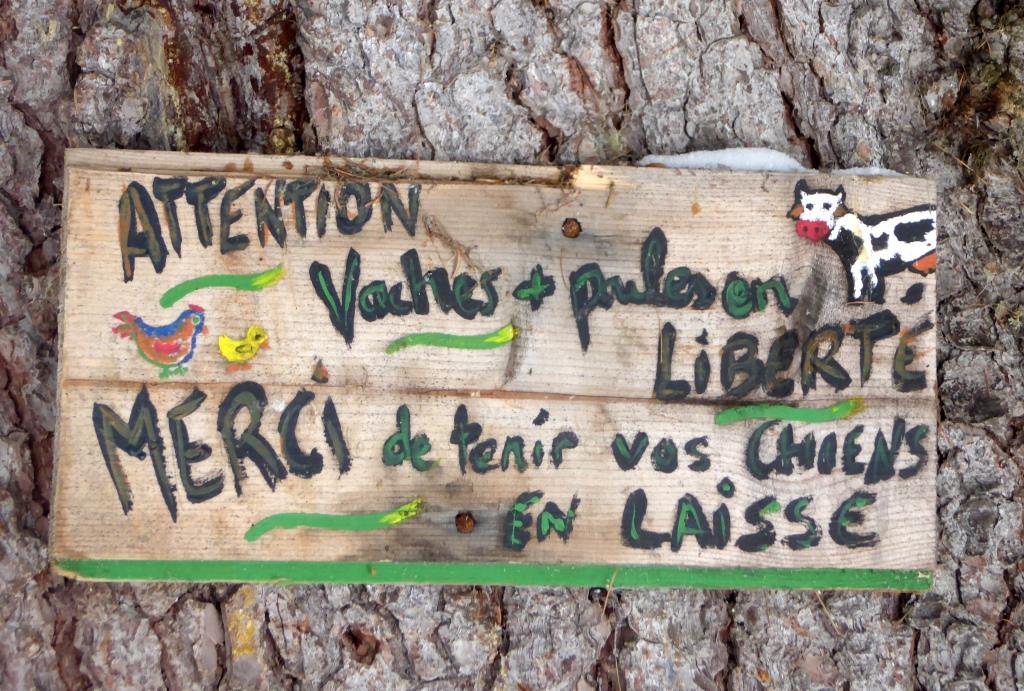 ATTENTION
Vaches + poules en
LiBERTÉ
MERCi de tenir vos CHIENS
EN LAiSSE